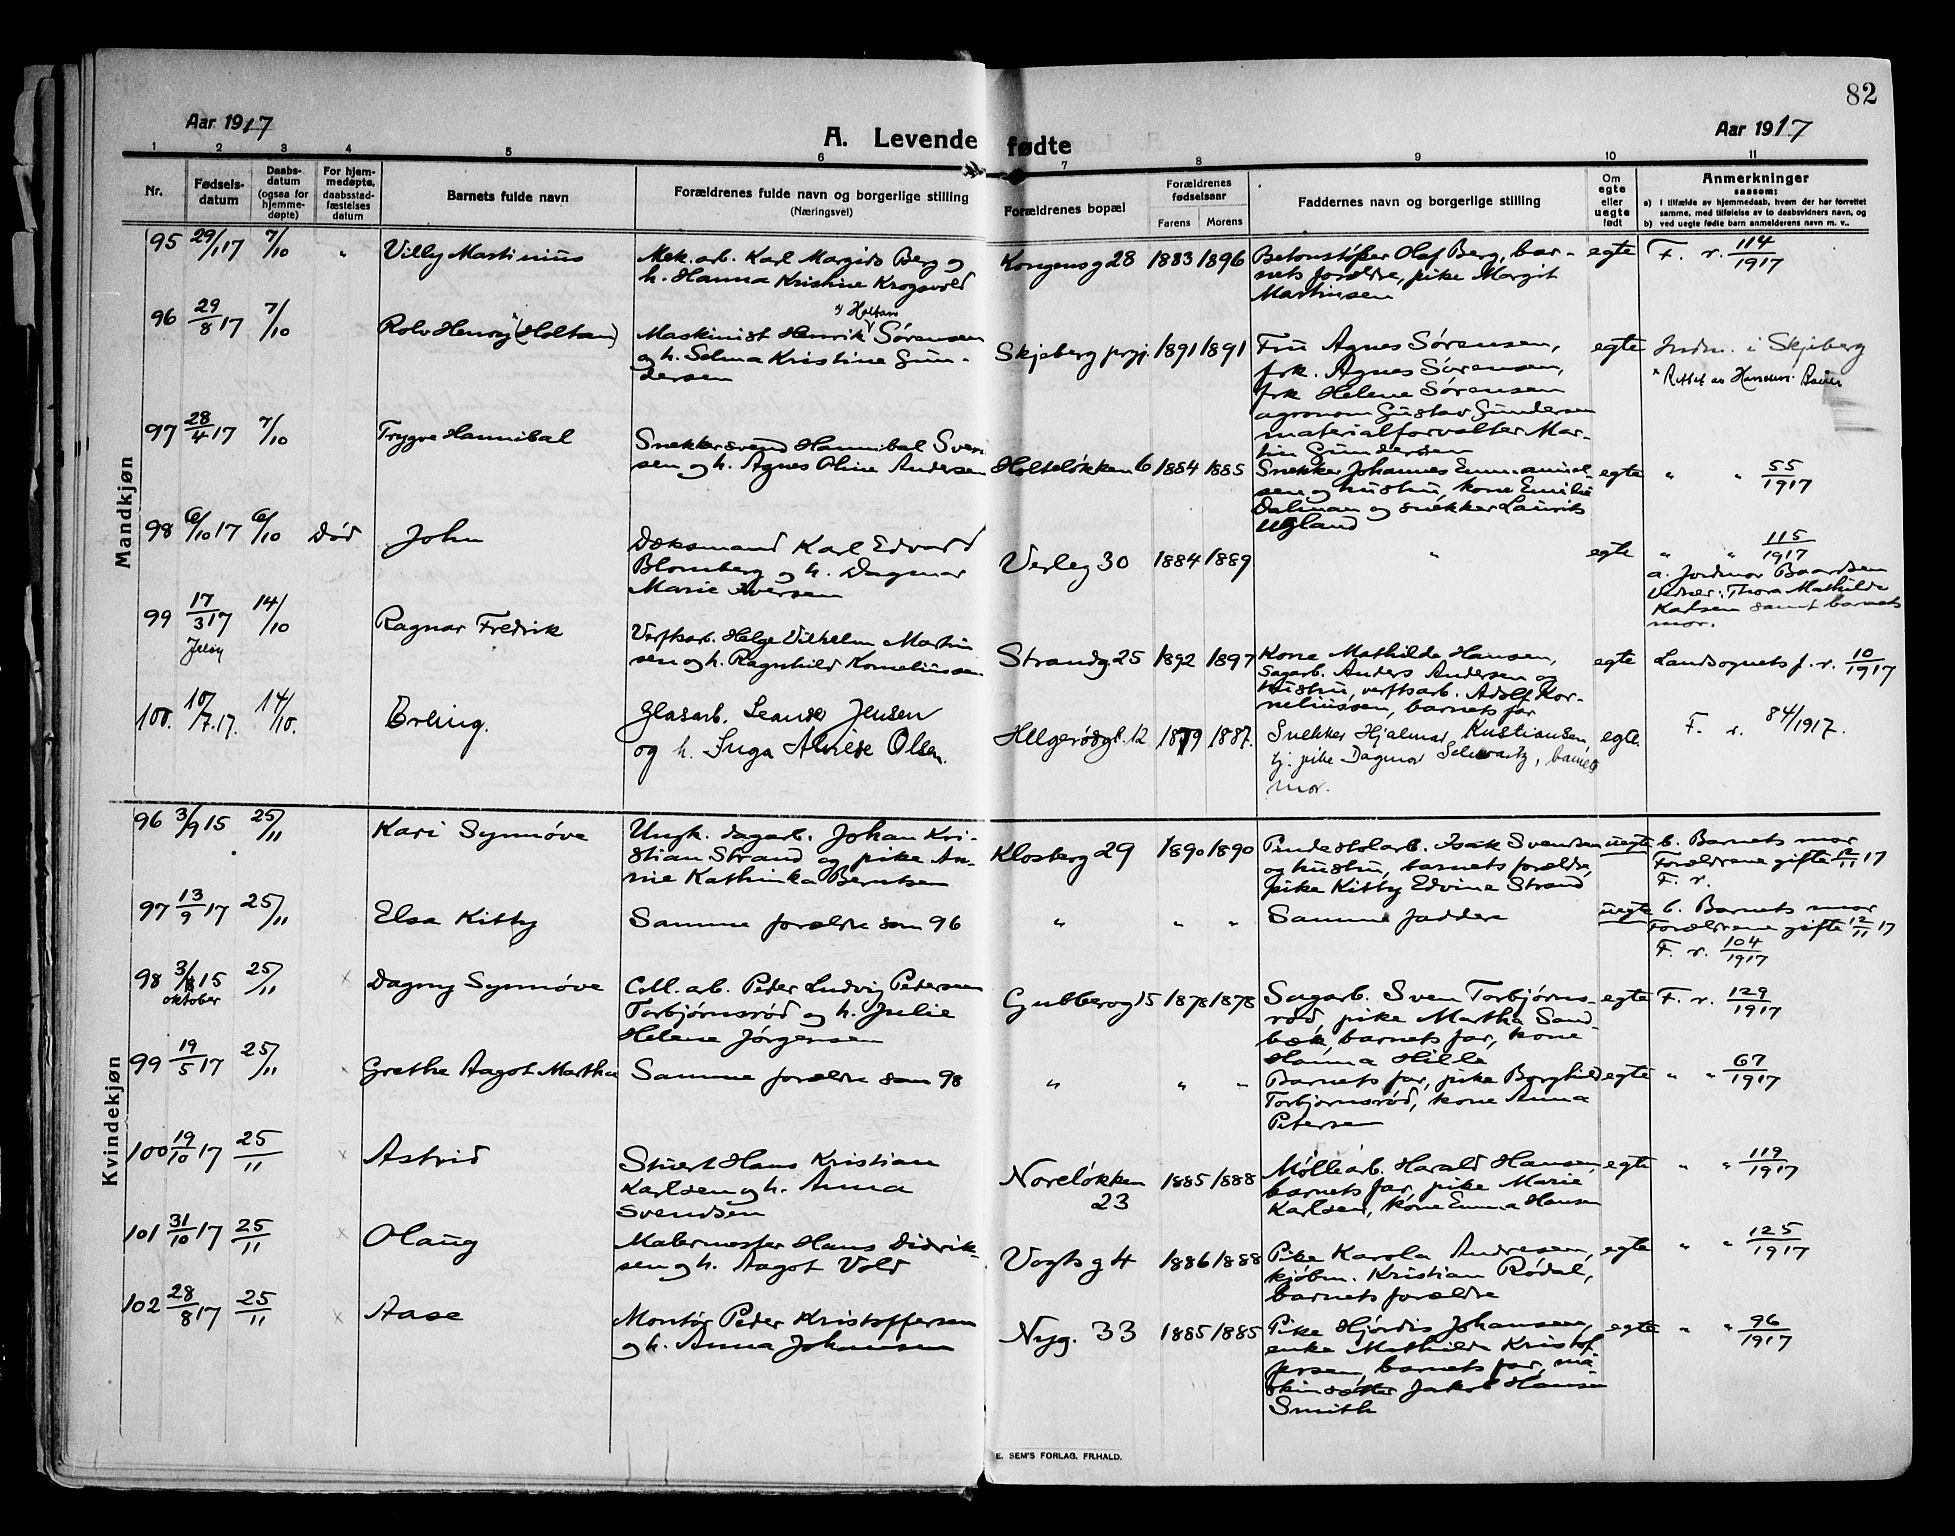 82
Aar 1917
A. Levende fødte
Aar 1917
1 2 3 4 5 6 7 8 9 10 11
Nr.
Fødsels-
datum
Daabs-
datum
(ogsaa for
hjemme-
døpte)
For hjem-
medøpte,
daabsstad-
fæstelses
datum
Barnets fulde navn
Forældrenes fulde navn og borgerlige stilling
(Næringsvei)
Forældrenes bopæl
Forældrenes
fødselsaar
Farens Morens
Faddernes navn og borgerlige stilling
Om
egte
eller
uegte
født
Anmerkninger
saasom:
a) I tilfælde av hjemmedaab, hvem der har forrettet
samme, med tilføielse av to daabsvidners navn, og
b) ved uegte fødte barn anmelderens navn m. v..
Mandkjøn
95 29/1 17 7/10 "
Villy Martinius
Mek. arb. Karl Margido Berg og
h. Hanna Kristine Krogsvold
Kongensg 28 1883 1896
Betonstøper Olaf Berg, bar-
nets forældre, pike Margit
Martinsen
egte
F. r. 114/1917
96 29/8 17 7/10
Rolv Henry x (Holtan)
x) Holtan
Maskinist Henrik Sørensen
og h. Selma Kristine Gun-
dersen
Skjeberg prgj. 1891 1891
Fru Agnes Sørensen,
frk. Agnes Sørensen,
frk Helene Sørensen
agronom Gustav Gundersen
materialforvalter Mar-
tin Gundersen
egte
Indm. i Skjeberg
x Rettet av
97 28/4 17 7/10
Trygve Hannibal
Snekkersvend Hannibal Sven
sen og h. Agnes Oline Andersen
Holteløkken 6 1884 1885
Snekker Johannes Emmanuel-
sen og hustru, kone Emilie
Dalman og snekker Laurits
Ugland
egte
" " 55/1917
98 6/10 17 6/10 Død
John
Dæksmand Karl Edvard
Blomberg og h. Dagmar
Marie Iversen
Verleg 30 1884 1889
"
egte
" " 115/1917
a. Jordmor Baardsen
Vidner: Thora Mathilde
Karlsen samt barnets
mor.
99 17/3 17 14/10
Jeløy
Ragnar Fredrik
Verftsarb. Helge Vilhelm Martin
sen og h. Ragnhild Korneliussen
Strandg 25 1892 1897
Kone Mathilde Hansen,
Sagarb. Anders Andersen og
hustru, verftsarb. Adolf Kor-
neliussen, barnets far
egte
Landsognets f. r. 10/1917
100. 10/7.17. 14/10.
Erling.
Glasarb. Leander Jensen
og h. Inga Alvilde Olsen.
Helgerødgt. 12 1879 1887.
Snekker Hjalmar Kristiansen,
tj. pike Dagmar Schwartz, barnets
mor.
egte.
F. r. 84/1917.
Kvindekjøn
96 3/9 15 25/11
Kari Synnøve
Ungk. dagarb. Johan Kri-
stian Strand og pike An-
nie Kathinka Berntsen
Klosterg 29 1890 1890
Pindeholarb. Isak Svensen
og hustru, barnets forældre,
pike Kitty Edvine Strand
uegte
b. Barnets mor
Forældrene gifte 12/11 17
F. r.
97 13/9 17 25/11
Elsa Kitty
Samme forældre som 96
" " "
Samme faddere
uegte
b. Barnets mor
Forældrene gifte 12/11 17
F. r. 104/1917
98 3/ 15 25/11 x
oktober
Dagny Synnøve
Cell. arb. Peder Ludvig Petersen
Torbjørnsrød og h. Julie
Helene Jørgensen
Gubberog 15 1878 1878
Sagarb. Sven Torbjørns-
rød, pike Martha Sand-
bæk, barnets far, kone
Hanna Hille
egte
F. r. 129/1917
99 19/5 17 25/11 x
Grethe Aagot Martha
Samme forældre som 98
" " "
Barnets far, pike Borghild
Torbjørnsrød, kone Anna
Petersen
egte
" " 67/1917
100 19/10 17 25/11 x
Astrid
Stuert Hans Kristian
Karlsen og h. Anna
Svendsen
Noreløkken
23
1885 1888
Møllearb. Harald Hansen,
barnets far, pike Marie
Karlsen, kone Emma Hansen
egte
" " 119/1917
101 31/10 17 25/11 x
Olaug
Malermester Hans Didrik-
sen og h. Aagot Vold
Vogts g 4 1886 1888
Pike Karola Andresen,
kjøbm. Kristian Rødal,
barnets forældre
egte
" " 125/1917
102 28/8 17 25/11 x
Aase
Montør Peder Kristoffersen
og h. Anna Johansen
Nyg. 33 1885 1885
Pike Hjørdis Johansen,
enke Mathilde Kristof
fersen, barnets far, ma
skinsætter Jakob Hansen
Smith
egte
" " 96/1917
E. SEM'S FORLAG. FR.HALD.